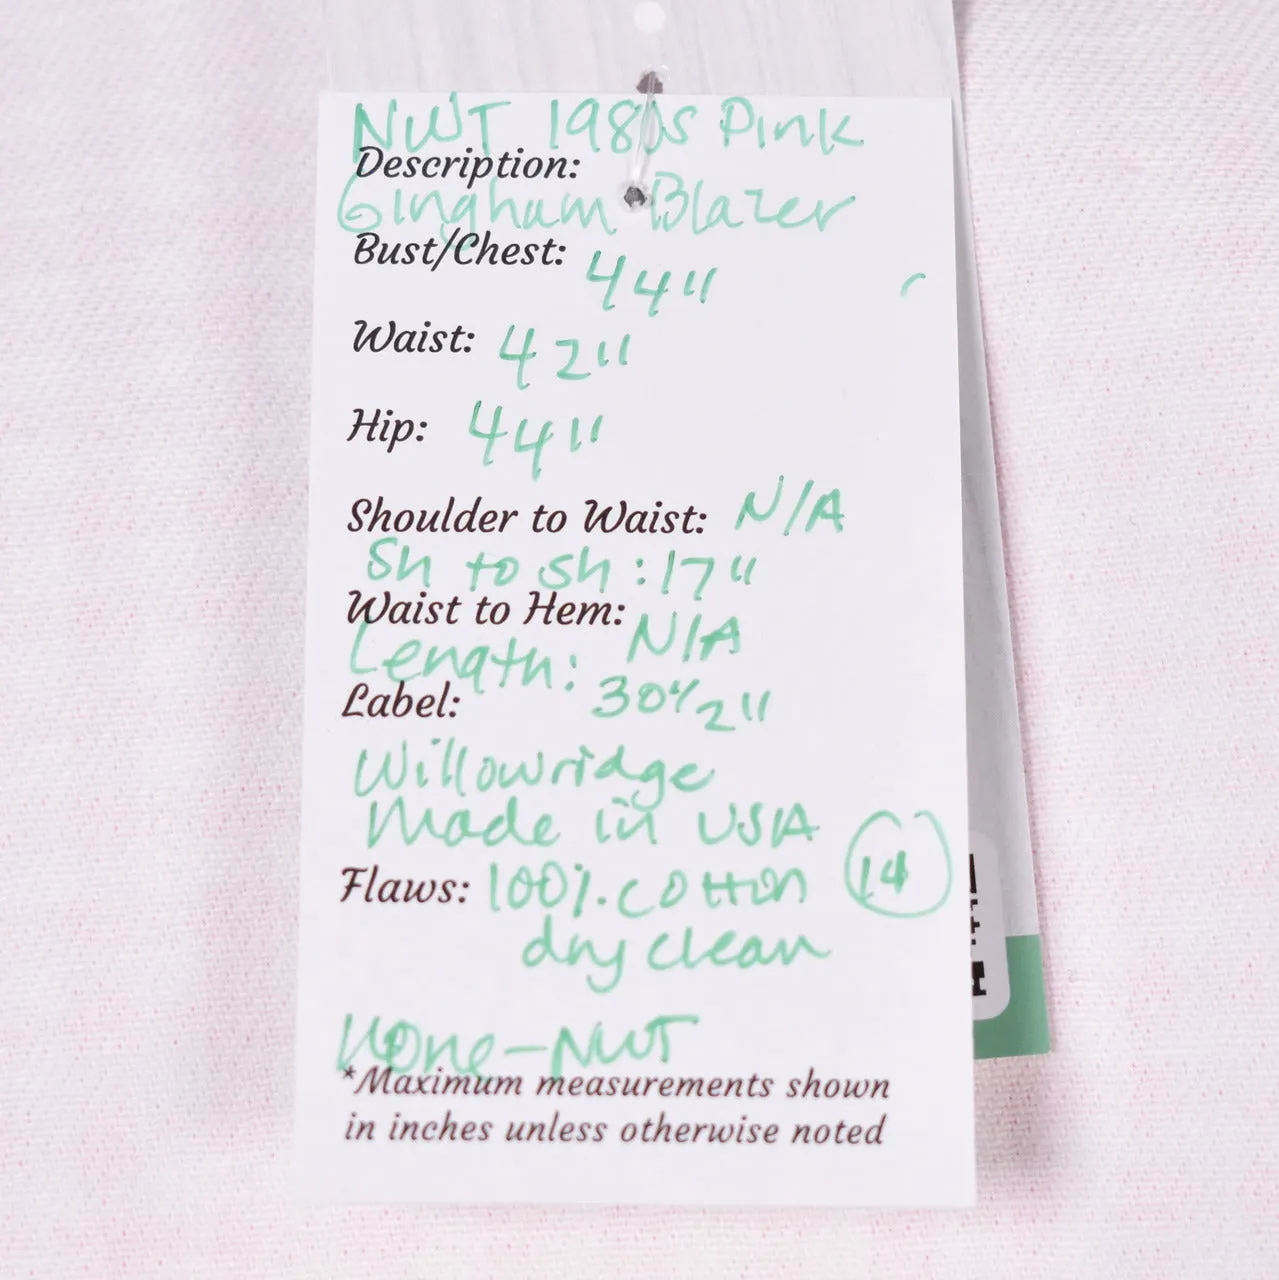 NWT 1980s Pink
Description:
Gingham Blazer
Bust/Chest: 44"
Waist: 42"
Hip: 44"
Shoulder to Waist: N/A
Sh to sh: 17"
Waist to Hem: N/A
Length: 30 1/2"
Label:
Willowridge
Made in USA
14
Flaws: 100% cotton
dry clean
None - NWT
*Maximum measurements shown
in inches unless otherwise noted